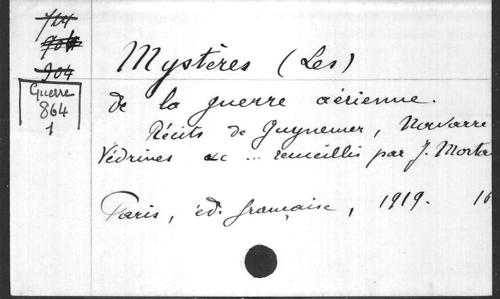 904
Guerre
864
1
Mystères (Les)
de la guerre aérienne.
Récits de Guynemer, Navarre
Védrines &c ... recueillis par J. Morta
Paris, éd. française, 1919. 16